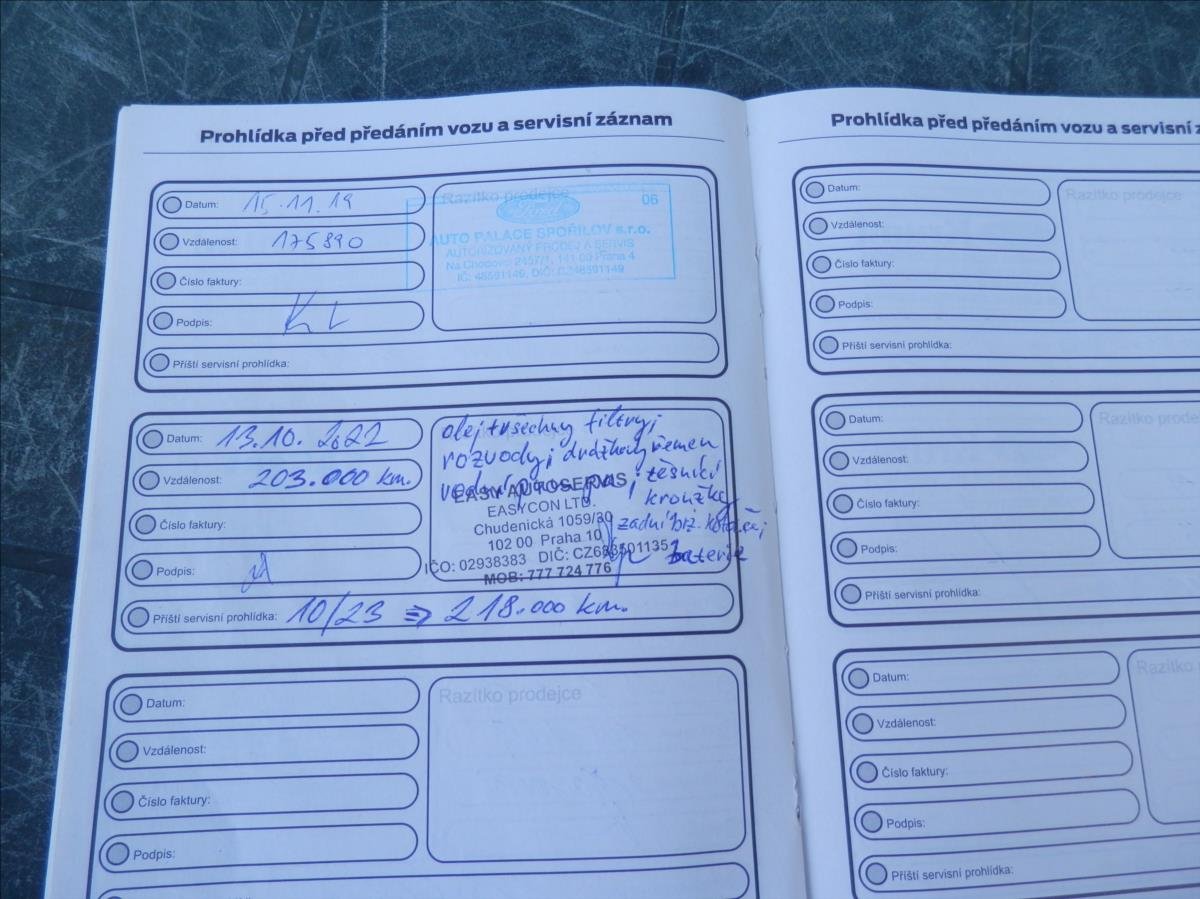 Prohlídka před předáním vozu a servisní záznam
Datum: 15.11.19
Vzdálenost: 175890
Číslo faktury:
Podpis:
Příští servisní prohlídka:
Razítko prodejce
Ford
06
AUTO PALACE SPOŘILOV s.r.o.
AUTORIZOVANÝ PRODEJ A SERVIS
Na Chodovci 2457/1, 141 00 Praha 4
IČ: 48591149, DIČ: CZ48591149
Datum: 13.10. 2022
Vzdálenost: 203.000 km.
Číslo faktury:
Podpis:
Příští servisní prohlídka: 10/23 => 218.000 km.
olej+všechny filtry;
rozvody; drážkový řemen
těsnící
kroužky
zadní brz. kotouče;
baterie
EASY AUTOSERVIS
EASYCON LTD.
Chudenická 1059/30
102 00 Praha 10
IČO: 02938383 DIČ: CZ6835011351
MOB: 777 724 776
Datum:
Vzdálenost:
Číslo faktury:
Podpis:
Razítko prodejce
Prohlídka před předáním vozu a servisní
Datum:
Vzdálenost:
Číslo faktury:
Podpis:
Příští servisní prohlídka:
Razítko prodejce
Datum:
Vzdálenost:
Číslo faktury:
Podpis:
Příští servisní prohlídka:
Razítko
Datum:
Vzdálenost:
Číslo faktury:
Podpis:
Příští servisní prohlídka:
Razítko